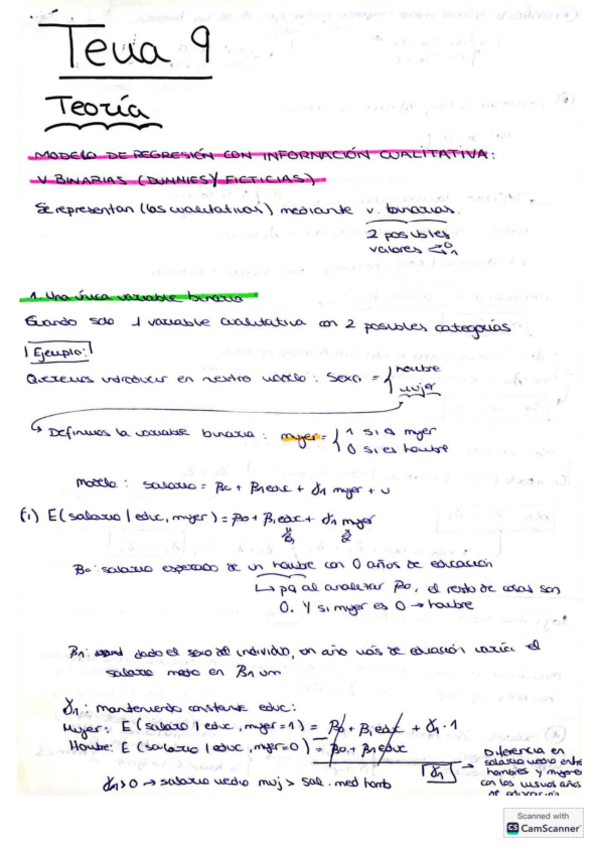 Tema 9
Teoría
MODELO DE REGRESIÓN CON INFORMACIÓN CUALITATIVA:
V. BINARIAS (DUMMIES Y FICTICIAS)
Se representan (las cualitativas) mediante v. binarias.
2 posibles
valores < 0 1
1. Una única variable binaria
Cuando solo 1 variable cualitativa con 2 posibles categorías
Ejemplo:
Queremos introducir en nuestro modelo: Sexo = { hombre
mujer
↳ Definimos la variable binaria: mujer = { 1 si es mujer
0 si es hombre
Modelo: salario = β0 + β1educ + γ1 mujer + u
(i) E(salario | educ, mujer) = β0 + β1educ + γ1 mujer
β0: salario esperado de un hombre con 0 años de educación
↳ pq al analizar β0, el resto de cosas son
0. Y si mujer es 0 → hombre
β1: dado el sexo del individuo, un año más de educación varía el
salario medio en β1 um
γ1: manteniendo constante educ:
Mujer: E(salario | educ, mujer=1) = β0 + β1educ + γ1·1
Hombre: E(salario | educ, mujer=0) = β0 + β1educ
γ1 → Diferencia en
salario medio entre
hombres y mujeres
con los mismos años
de educación
γ1>0 → salario medio muj > sal. med homb
Scanned with
CS CamScanner